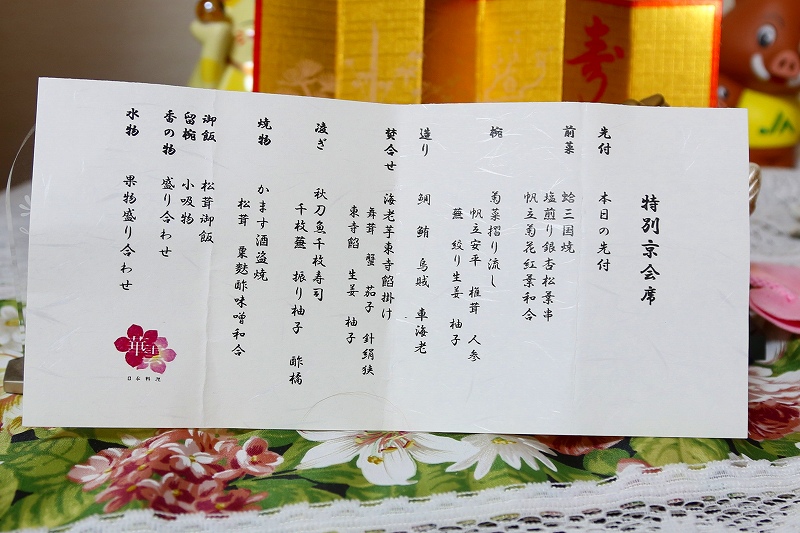 特別京会席
先付 本日の先付
前菜 蛤三国焼
塩煎り銀杏松葉串
帆立菊花紅葉和合
椀 菊菜摺り流し
帆立安平 椎茸 人参
蕪 絞り生姜 柚子
造り 鯛 鮪 烏賊 車海老
焚合せ 海老芋東寺餡掛け
舞茸 蟹 茄子 針絹狭
東寺餡 生姜 柚子
凌ぎ 秋刀魚千枚寿司
千枚蕪 振り柚子 酢橘
焼物 かます酒盗焼
松茸 粟麩酢味噌和合
御飯 松茸御飯
留椀 小吸物
香の物 盛り合わせ
水物 果物盛り合わせ
日本料理
寿
JA